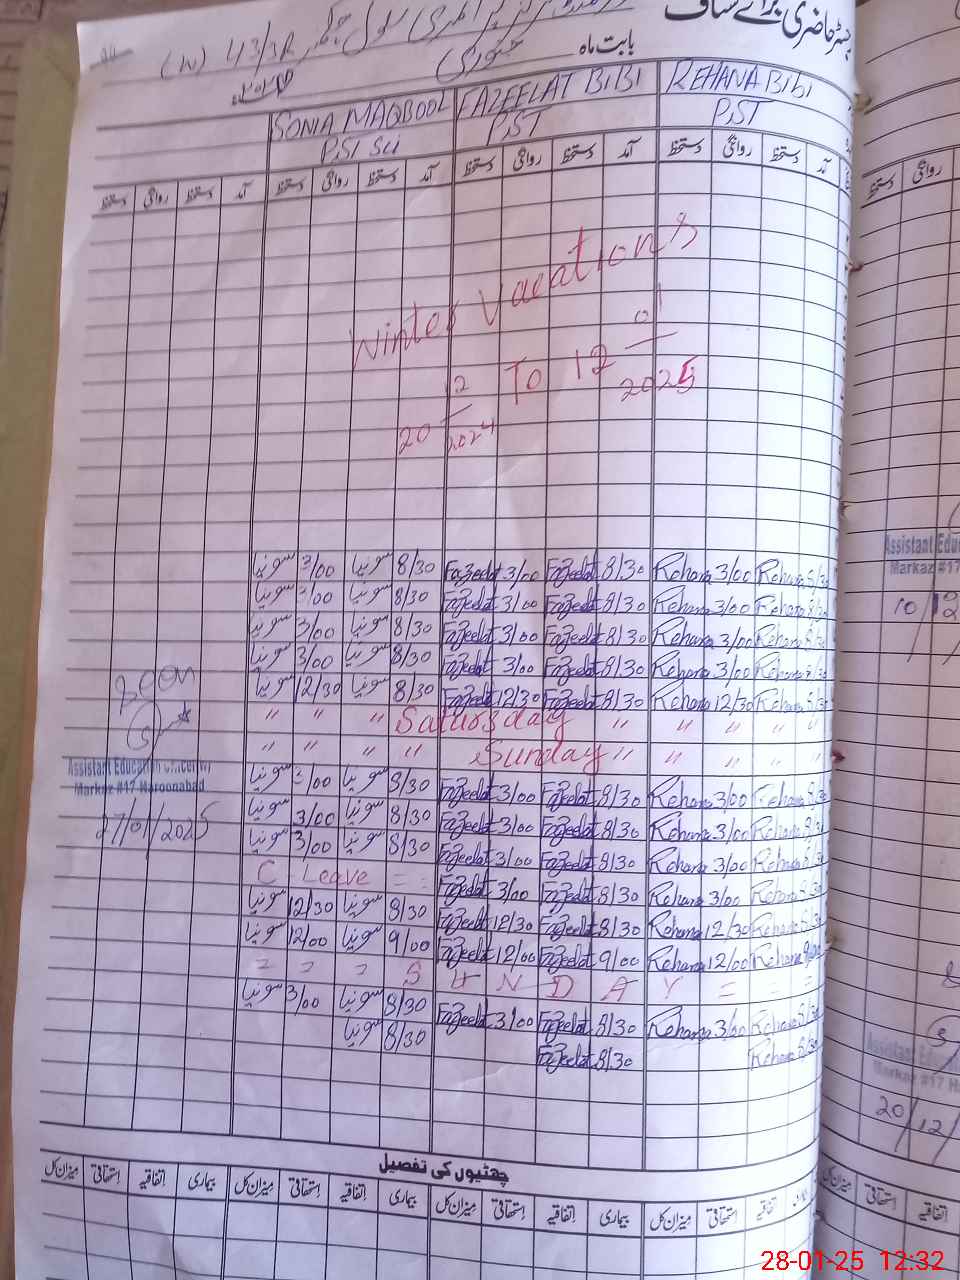 رجسٹر حاضری برائے سٹاف
پرائمری سکول 43/3R (W)
بابت ماہ جنوری
SONIA MAQBOOL FAZEELAT BIBI REHANA BIBI
PST Sci PST PST
دستخط روانگی دستخط آمد دستخط روانگی دستخط آمد دستخط روانگی دستخط آمد دستخط روانگی دستخط آمد
دستخط روانگی
Winter Vacations
20 12/2024 To 12 01/2025
سونیا 3/00 سونیا 8/30 Fazeelat 3/00 Fazeelat 8/30 Rehana 3/00 Rehana 8/30
سونیا 3/00 سونیا 8/30 Fazeelat 3/00 Fazeelat 8/30 Rehana 3/00 Rehana 8/30
سونیا 3/00 سونیا 8/30 Fazeelat 3/00 Fazeelat 8/30 Rehana 3/00 Rehana 8/30
سونیا 3/00 سونیا 8/30 Fazeelat 3/00 Fazeelat 8/30 Rehana 3/00 Rehana 8/30
سونیا 12/30 سونیا 8/30 Fazeelat 12/30 Fazeelat 8/30 Rehana 12/30 Rehana 8/30
" " " Saturday " " " " "
" " " " Sunday " " " " "
سونیا 3/00 سونیا 8/30 Fazeelat 3/00 Fazeelat 8/30 Rehana 3/00 Rehana 8/30
سونیا 3/00 سونیا 8/30 Fazeelat 3/00 Fazeelat 8/30 Rehana 3/00 Rehana 8/30
سونیا 3/00 سونیا 8/30 Fazeelat 3/00 Fazeelat 8/30 Rehana 3/00 Rehana 8/30
C Leave = = Fazeelat 3/00 Fazeelat 8/30 Rehana 3/00 Rehana 8/30
سونیا 12/30 سونیا 8/30 Fazeelat 12/30 Fazeelat 8/30 Rehana 12/30 Rehana 8/30
سونیا 12/00 سونیا 9/00 Fazeelat 12/00 Fazeelat 9/00 Rehana 12/00 Rehana 9/00
= = = S U N D A Y = = =
سونیا 3/00 سونیا 8/30 Fazeelat 3/00 Fazeelat 8/30 Rehana 3/00 Rehana 8/30
سونیا 8/30 Fazeelat 8/30 Rehana 8/30
Seen
Assistant Education Officer(W)
Markaz #17 Haroonabad
27/01/2025
چھٹیوں کی تفصیل
میزان کل استحقاقی اتفاقیہ بیماری میزان کل استحقاقی اتفاقیہ بیماری میزان کل استحقاقی اتفاقیہ بیماری میزان کل استحقاقی اتفاقیہ
Assistant Edu
Markaz #17
10/12
Assistant Edu
Markaz #17 H
20/12/
میزان کل استحقاقی اتفاقیہ
28-01-25 12:32